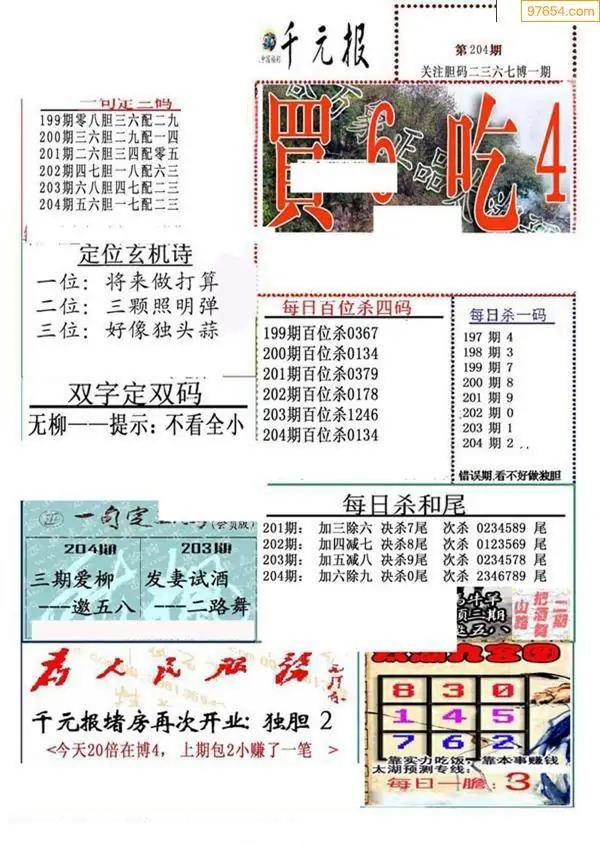 97654.com
千元报
第204期
关注胆码二三六七博一期
一句定三码
199期零八胆三六配二九
200期三六胆二九配一四
201期二六胆三四配零五
202期四七胆一八配六三
203期六八胆四七配二三
204期五六胆一七配二三
買6吃4
定位玄机诗
一位：将来做打算
二位：三颗照明弹
三位：好像独头蒜
每日百位杀四码
199期百位杀0367
200期百位杀0134
201期百位杀0379
202期百位杀0178
203期百位杀1246
204期百位杀0134
每日杀一码
197 期 4
198 期 3
199 期 7
200 期 8
201 期 9
202 期 0
203 期 1
204 期 2
错误期,看不好做独胆
双字定双码
无柳——提示：不看全小
一句定
(会员版)
204期
三期爱柳
---邀五八
203期
发妻试酒
---二路舞
每日杀和尾
201期： 加三除六 决杀7尾 次杀 0234589 尾
202期： 加四减七 决杀8尾 次杀 0123569 尾
203期： 加五减八 决杀9尾 次杀 0234578 尾
204期： 加六除九 决杀0尾 次杀 2346789 尾
为人民服务
千元报堵房再次开业：独胆 2
<今天20倍在博4，上期包2小赚了一笔 >
8 3 0
1 4 5
7 6 2
靠实力吃饭，靠本事赚钱
太湖预测专线：
每日一胆：3